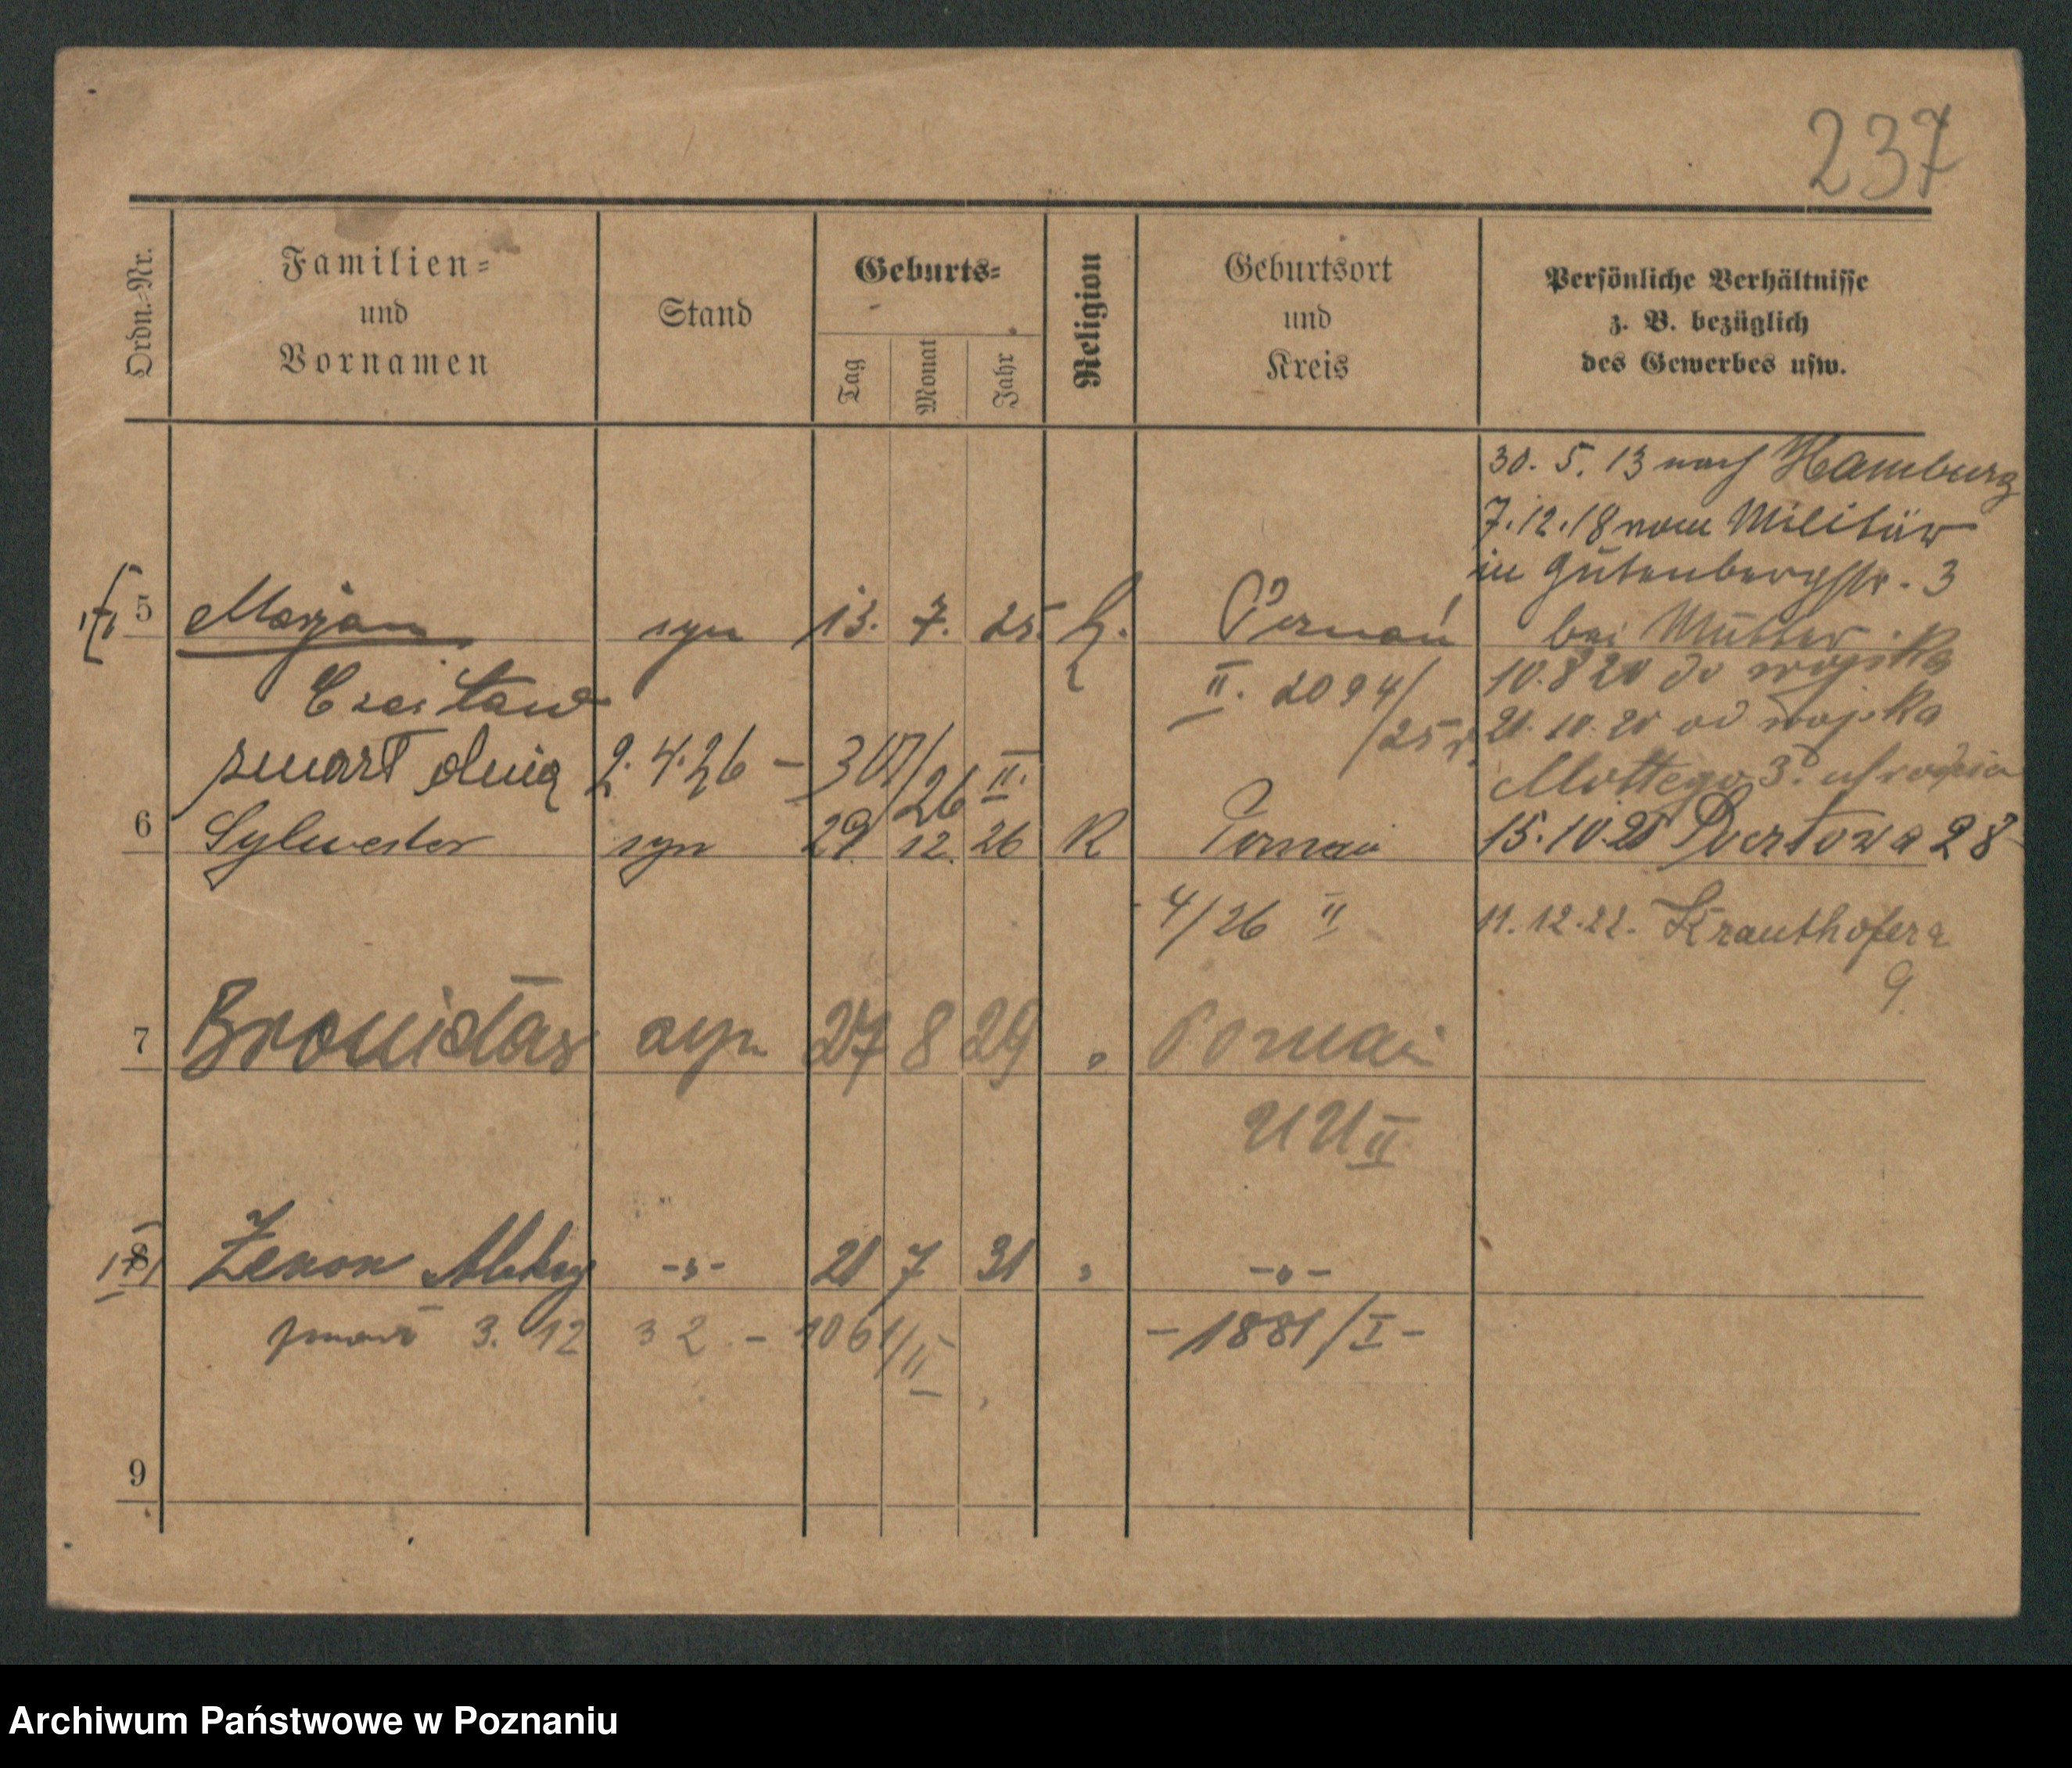 237
Ordn.-Nr.
Familien-
und
Vornamen
Stand
Geburts-
Tag
Monat
Jahr
Religion
Geburtsort
und
Kreis
Persönliche Verhältnisse
z. B. bezüglich
des Gewerbes usw.
30. 5. 13 nach Hamburg
7.12.18 vom Militär
in Gutenbergstr. 3
5 Marjan syn 13. 7. 25. Poznań bei Mutter
Czesław II. 2094/25 10.8 20 do wojska
21. 10. 20 od wojska
zmarł dnia 2.4.26 - 307/26 II. Mottego 3
6 Sylwester syn 29. 12. 26 R Poznań 15.10.20 28
4/26 II 11.12.22. Krauthofera
9.
7 Bronisław syn 27 8 29 " Poznań
II
8 Zenon -"- 21 7 31 " -"-
zmarł 3. 12 32 - 1061/II - 1881/I -
9
Archiwum Państwowe w Poznaniu